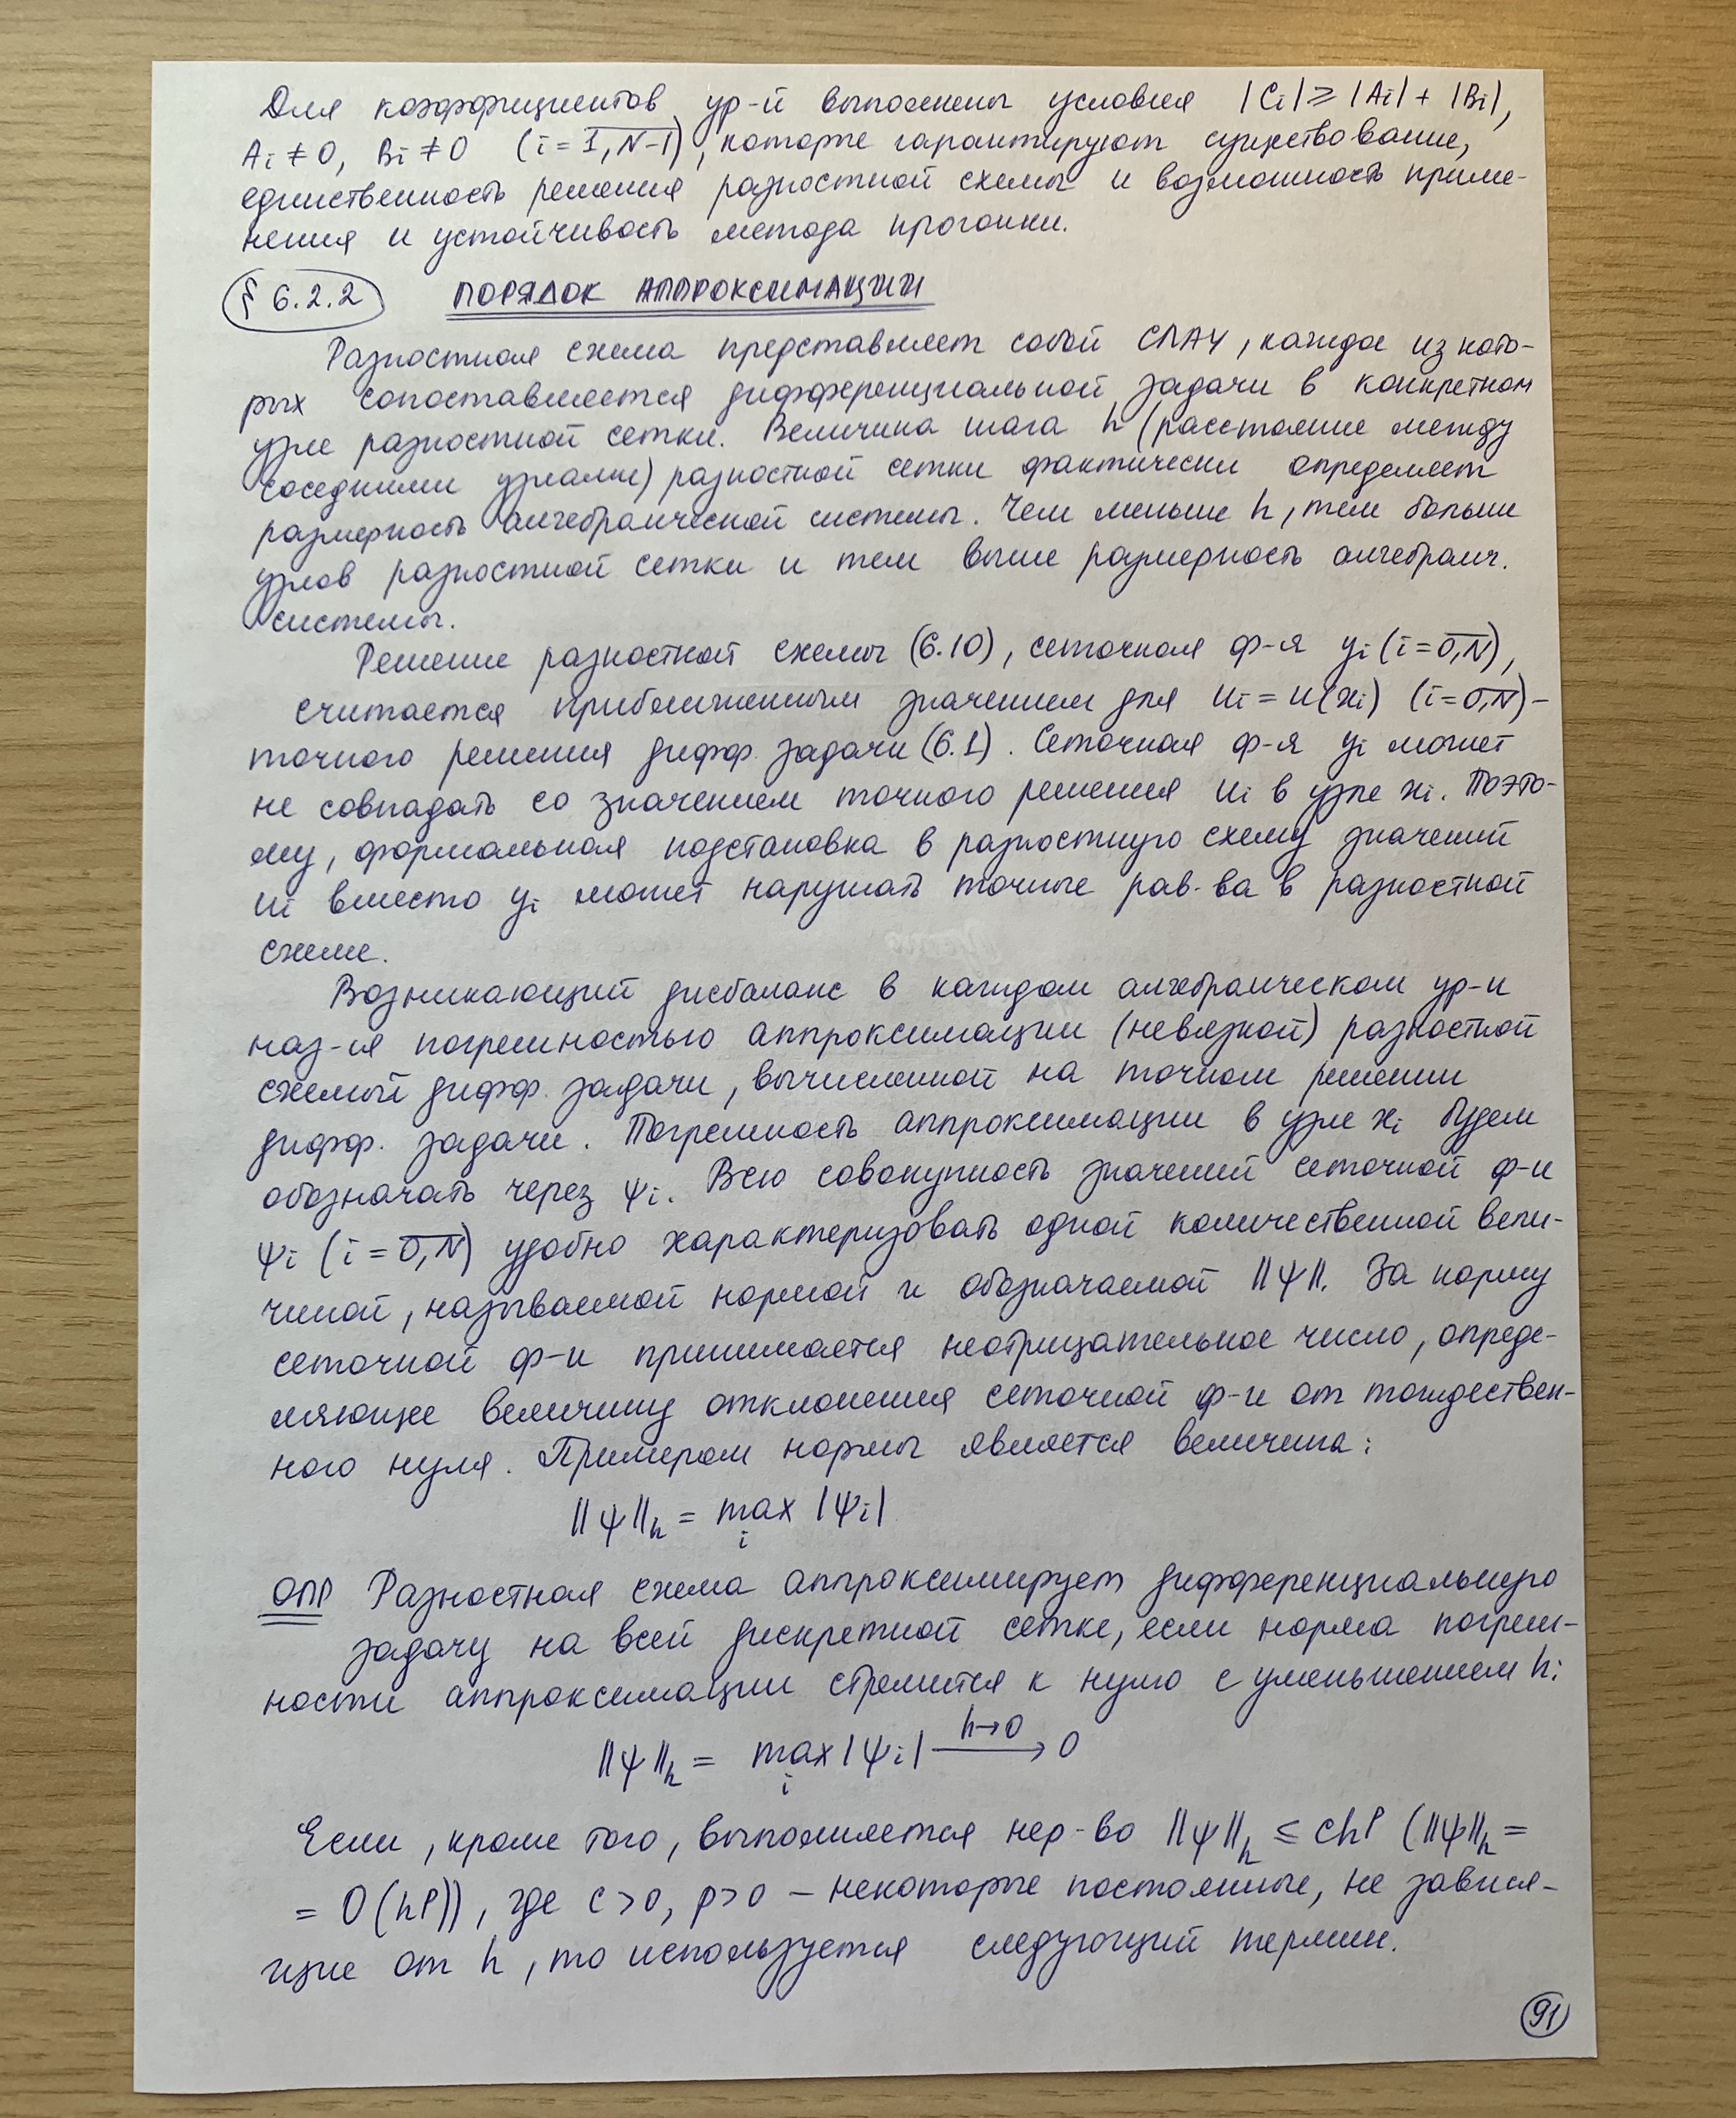 Для коэффициентов ур-й выполнены условия |Ci| ≥ |Ai| + |Bi|,
Ai ≠ 0, Bi ≠ 0 (i = 1, N-1), которые гарантируют существование,
единственность решения разностной схемы и возможность приме-
нения и устойчивость метода прогонки.
§ 6.2.2 ПОРЯДОК АППРОКСИМАЦИИ
Разностная схема представляет собой СЛАУ, каждое из кото-
рых сопоставляется дифференциальной задачи в конкретном
узле разностной сетки. Величина шага h (расстояние между
соседними узлами) разностной сетки фактически определяет
размерность алгебраической системы. Чем меньше h, тем больше
узлов разностной сетки и тем выше размерность алгебраич.
системы.
Решение разностной схемы (6.10), сеточная ф-я yi (i = 0,N),
считается приближенным значением для ui = u(xi) (i = 0,N) -
точного решения дифф. задачи (6.1). Сеточная ф-я yi может
не совпадать со значением точного решения ui в узле xi. Поэто-
му, формальная подстановка в разностную схему значений
ui вместо yi может нарушать точные рав-ва в разностной
схеме.
Возникающий дисбаланс в каждом алгебраическом ур-и
наз-ся погрешностью аппроксимации (невязкой) разностной
схемой дифф. задачи, вычисленной на точном решении
дифф. задачи. Погрешность аппроксимации в узле xi будем
обозначать через ψi. Всю совокупность значений сеточной ф-и
ψi (i = 0,N) удобно характеризовать одной количественной вели-
чиной, называемой нормой и обозначаемой ||ψ||. За норму
сеточной ф-и принимается неотрицательное число, опреде-
ляющее величину отклонения сеточной ф-и от тождествен-
ного нуля. Примером нормы является величина:
||ψ||h = max i |ψi|
ОПР Разностная схема аппроксимирует дифференциальную
задачу на всей дискретной сетке, если норма погреш-
ности аппроксимации стремится к нулю с уменьшением h:
||ψ||h = max i |ψi| h→0 → 0
Если, кроме того, выполняется нер-во ||ψ||h ≤ ch^p (||ψ||h =
= O(h^p)), где c > 0, p > 0 – некоторые постоянные, не завися-
щие от h, то используется следующий термин.
91